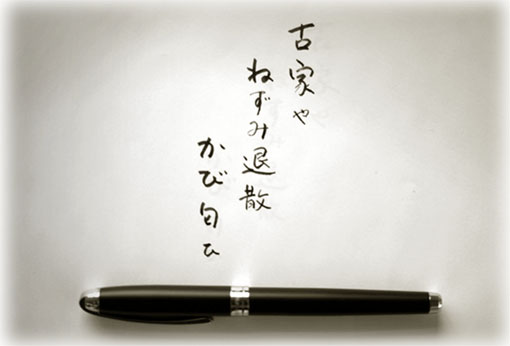 古家や
ねずみ退散
かび匂ひ